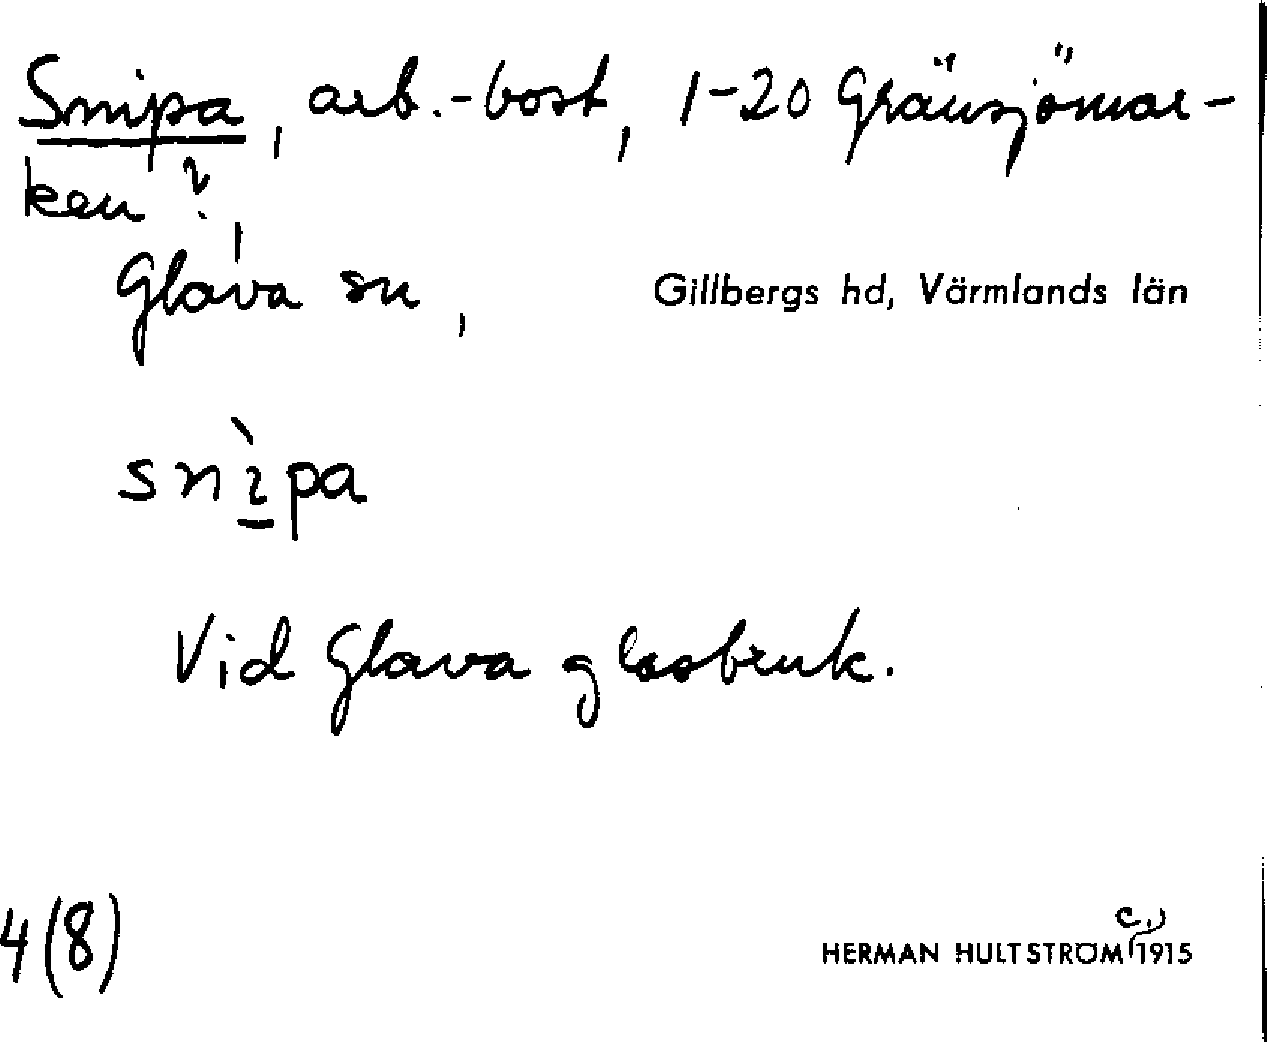 Snipa, arb.-bost, 1-20 Gränsjömar-
ken?,
Glava sn, Gillbergs hd, Värmlands län
snìpa
Vid Glava glasbruk.
4(8)
HERMAN HULTSTRÖM c. 1915